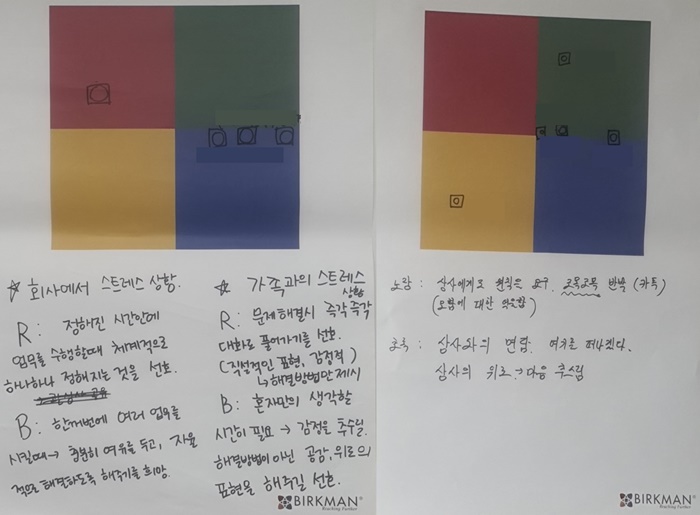 ☆ 회사에서 스트레스 상황.
R: 정해진 시간안에
업무를 수행할때 체계적으로
하나하나 정해지는 것을 선호.
B: 한꺼번에 여러 업무를
시킬때 → 충분히 여유를 두고, 자율
적으로 해결하도록 해주기를 희망.
☆ 가족과의 스트레스
상황
R: 문제해결시 즉각즉각
대화로 풀어가기를 선호.
(직설적인 표현, 감정적)
↳ 해결방법만 제시
B: 혼자만의 생각할
시간이 필요 → 감정을 추수릴.
해결방법이 아닌 공감, 위로의
표현을 해주길 선호.
BIRKMAN®
Reaching Further
노랑: 상사에게도 원칙을 요구. 조목조목 반박 (카톡)
(모함에 대한 억울함)
초록: 상사와의 면담. 여기를 떠나겠다.
상사의 위로 → 마음 추스림
BIRKMAN®
Reaching Further